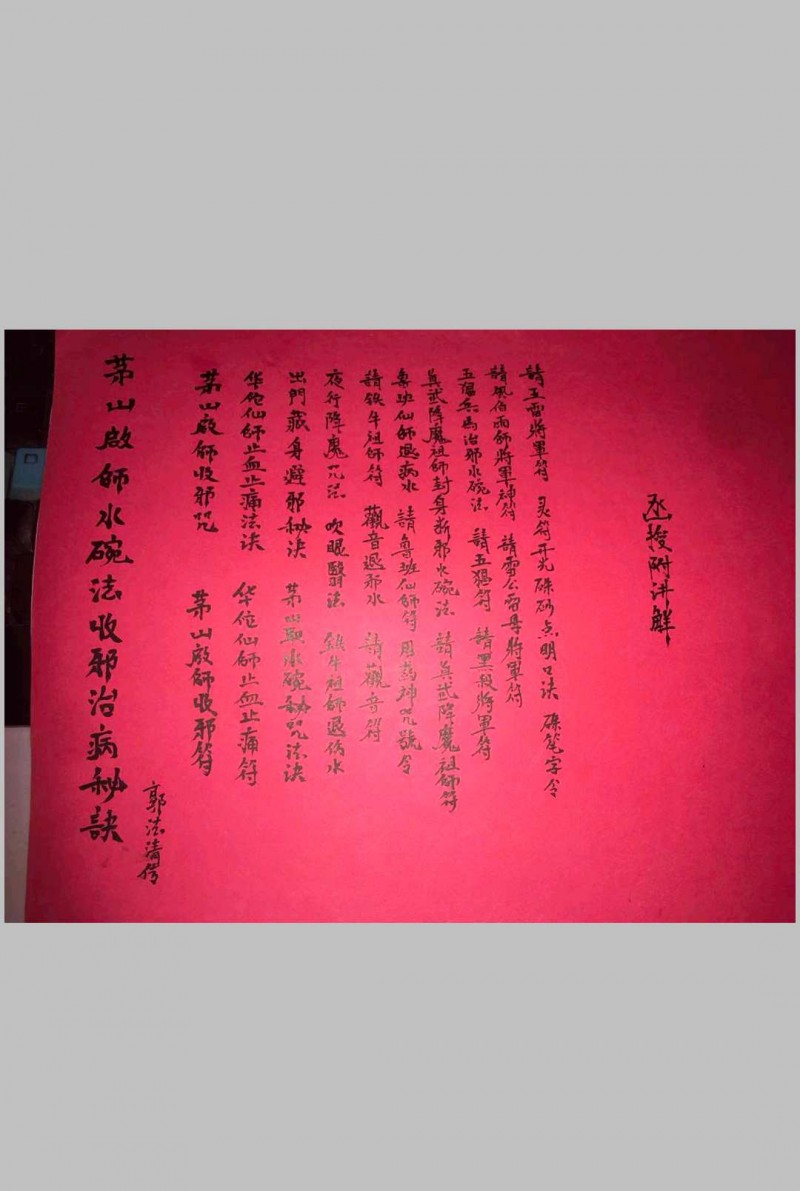 茅山啟師水碗法收邪治病秘訣
郭法清傳
茅山啟師收邪咒 茅山啟師收邪符
华佗仙师止血止痛法决 华佗仙师止血止痛符
出門藏身避邪秘决 茅山取水碗秘咒法决
夜行降魔咒法 吹眼翳法 鉄牛祖師退伤水
請铁牛祖師符 觀音退邪水 請觀音符
魯班仙師退病水 請魯班仙師符 用药神咒號令
真武降魔祖師封身断邪水碗法 請真武降魔祖師符
五猖兵馬治邪水碗法 請五猖符 請黑殺將軍符
請風伯雨師將軍神符 請雷公雷母將軍符
請五雷將軍符 灵符开光硃砂点明口决 硃笔字令
函授附讲解